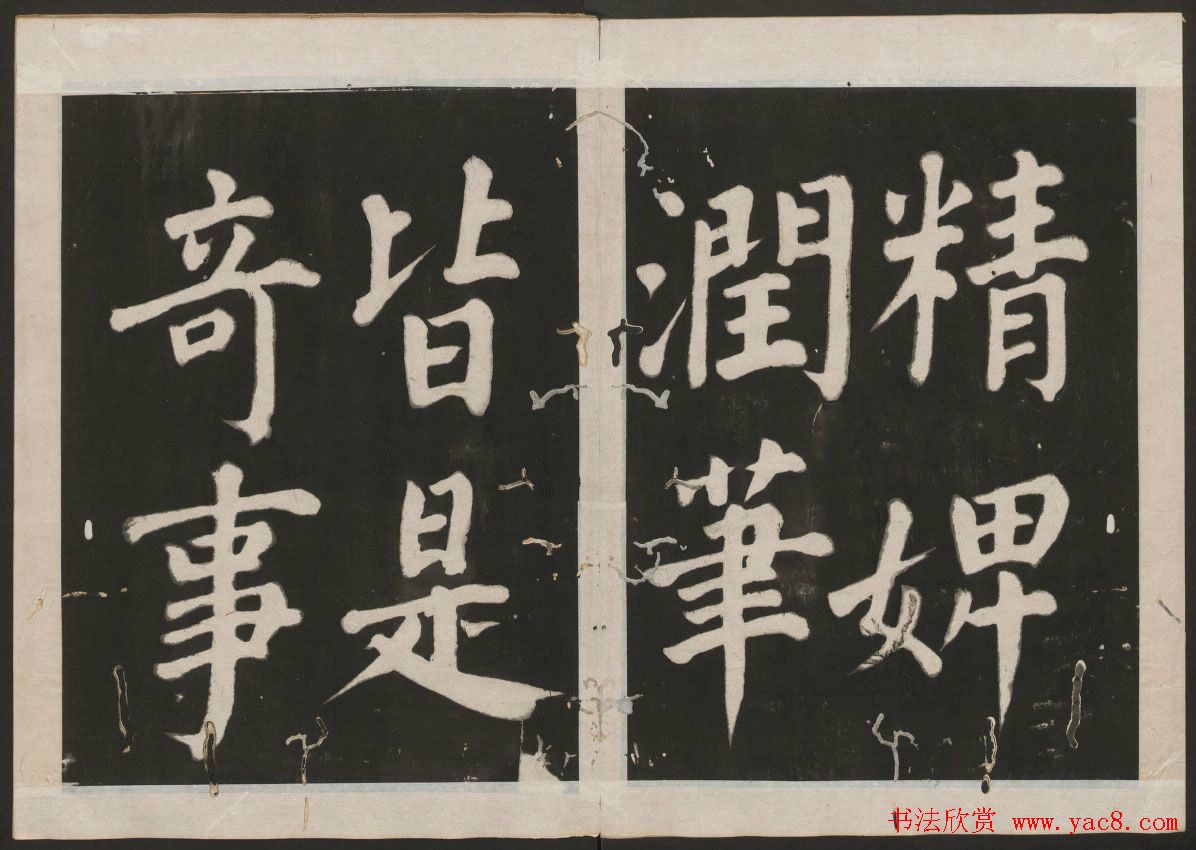 精婢
潤筆
皆是
奇事
书法欣赏 www.yac8.com